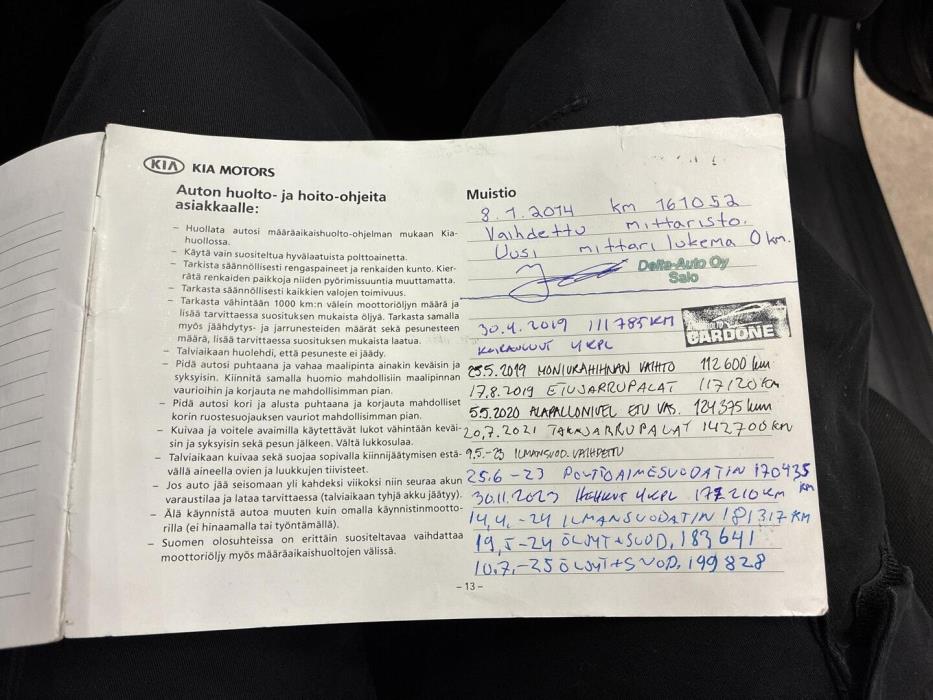 KIA KIA MOTORS
Auton huolto- ja hoito-ohjeita
asiakkaalle:
– Huollata autosi määräaikaishuolto-ohjelman mukaan Kia-
huollossa.
– Käytä vain suositeltua hyvälaatuista polttoainetta.
– Tarkista säännöllisesti rengaspaineet ja renkaiden kunto. Kier-
rätä renkaiden paikkoja niiden pyörimissuuntia muuttamatta.
– Tarkasta säännöllisesti kaikkien valojen toimivuus.
– Tarkasta vähintään 1000 km:n välein moottoriöljyn määrä ja
lisää tarvittaessa suosituksen mukaista öljyä. Tarkasta samalla
myös jäähdytys- ja jarrunesteiden määrät sekä pesunesteen
määrä, lisää tarvittaessa suosituksen mukaista laatua.
– Talviaikaan huolehdi, että pesuneste ei jäädy.
– Pidä autosi puhtaana ja vahaa maalipinta ainakin keväisin ja
syksyisin. Kiinnitä samalla huomio mahdollisiin maalipinnan
vaurioihin ja korjauta ne mahdollisimman pian.
– Pidä autosi kori ja alusta puhtaana ja korjauta mahdolliset
korin ruostesuojauksen vauriot mahdollisimman pian.
– Kuivaa ja voitele avaimilla käytettävät lukot vähintään keväi-
sin ja syksyisin sekä pesun jälkeen. Vältä lukkosulaa.
– Talviaikaan kuivaa sekä suojaa sopivalla kiinnijäätymisen estä-
vällä aineella ovien ja luukkujen tiivisteet.
– Jos auto jää seisomaan yli kahdeksi viikoksi niin seuraa akun
varaustilaa ja lataa tarvittaessa (talviaikaan tyhjä akku jäätyy).
– Älä käynnistä autoa muuten kuin omalla käynnistinmootto-
rilla (ei hinaamalla tai työntämällä).
– Suomen olosuhteissa on erittäin suositeltavaa vaihdattaa
moottoriöljy myös määräaikaishuoltojen välissä.
Muistio
8.1.2014 km 161052
Vaihdettu mittaristo.
Uusi mittari lukema 0 km.
Delta-Auto Oy
Salo
30.4.2019 111785 KM
4 KPL
CARDONE
25.5.2019 MONIURAHIHNAN VAIHTO 112 600 km
17.8.2019 ETUJARRUPALAT 117120 Km
5.5.2020 ALAPALLONIVEL ETU VAS. 124375 km
20.7.2021 TAKAJARRUPALAT 142700 km
9.5.-23 ILMANSUOD. VAIHDETTU
25.6-23 POLTTOAIMESUODATIN 170435 km
30.11.2023 4 KPL 177210 KM
14.4.-24 ILMANSUODATIN 181317 KM
19.5-24 ÖLJYT+SUOD. 183641
10.7.-25 ÖLJYT+SUOD. 199828
– 13 –